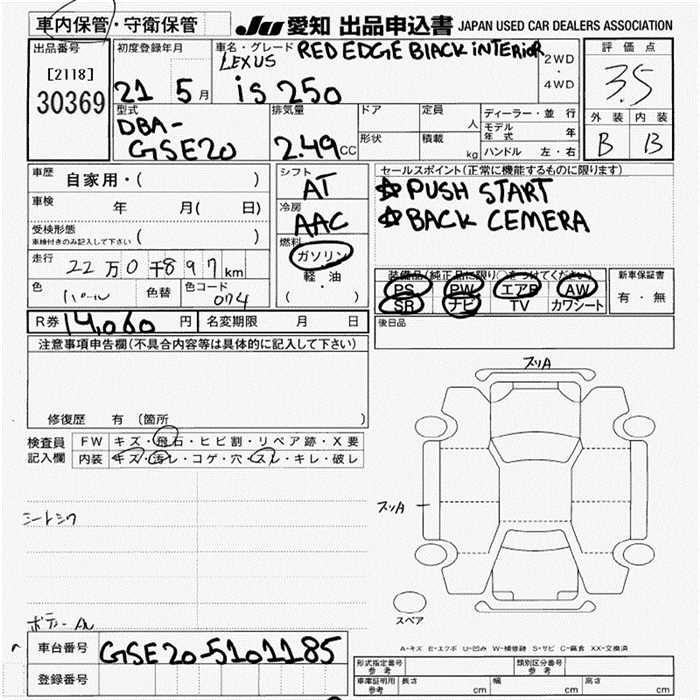 車内保管・守衛保管
JU 愛知 出品申込書 JAPAN USED CAR DEALERS ASSOCIATION
出品番号
[2118]
30369
初度登録年月
21 5月
車名・グレード RED EDGE BLACK INTERIOR
LEXUS
is 250
2WD
・
4WD
評価点
3.5
外装 内装
B B
型式
DBA-
GSE20
排気量
2.49cc
ドア
定員
人
形状
積載
kg
ディーラー・並行
モデル年式 年
ハンドル 左・右
車歴 自家用・( )
車検 年 月( 日)
受検形態
車検付きのみ記入して下さい ( )
走行 22万0千897km
色 パール 色替 色コード 074
シフト
AT
冷房
AAC
燃料
ガソリン
軽・油
( )
セールスポイント(正常に機能するものに限ります)
☆PUSH START
☆BACK CEMERA
装備品(純正品に限り○をつけてください)
PS PW エアB AW
SR ナビ TV カワシート
新車保証書
有・無
R券 14,060円 名変期限 月 日
後日品
注意事項申告欄(不具合内容等は具体的に記入して下さい)
修復歴 有(箇所 )
検査員
記入欄
FW キズ・飛石・ヒビ割・リペア跡・X要
内装 キズ・汚レ・コゲ・穴・スレ・キレ・破レ
スリA
スリA
シートシワ
ボディー AU
スペア
A-キズ E-エクボ U-凹み W-補修跡 S-サビ C-腐食 XX-交換済
車台番号 GSE20-5101185
登録番号
形式指定番号
参考
類別区分番号
参考
車庫証明用
参考
長さ cm 幅 cm 高さ cm